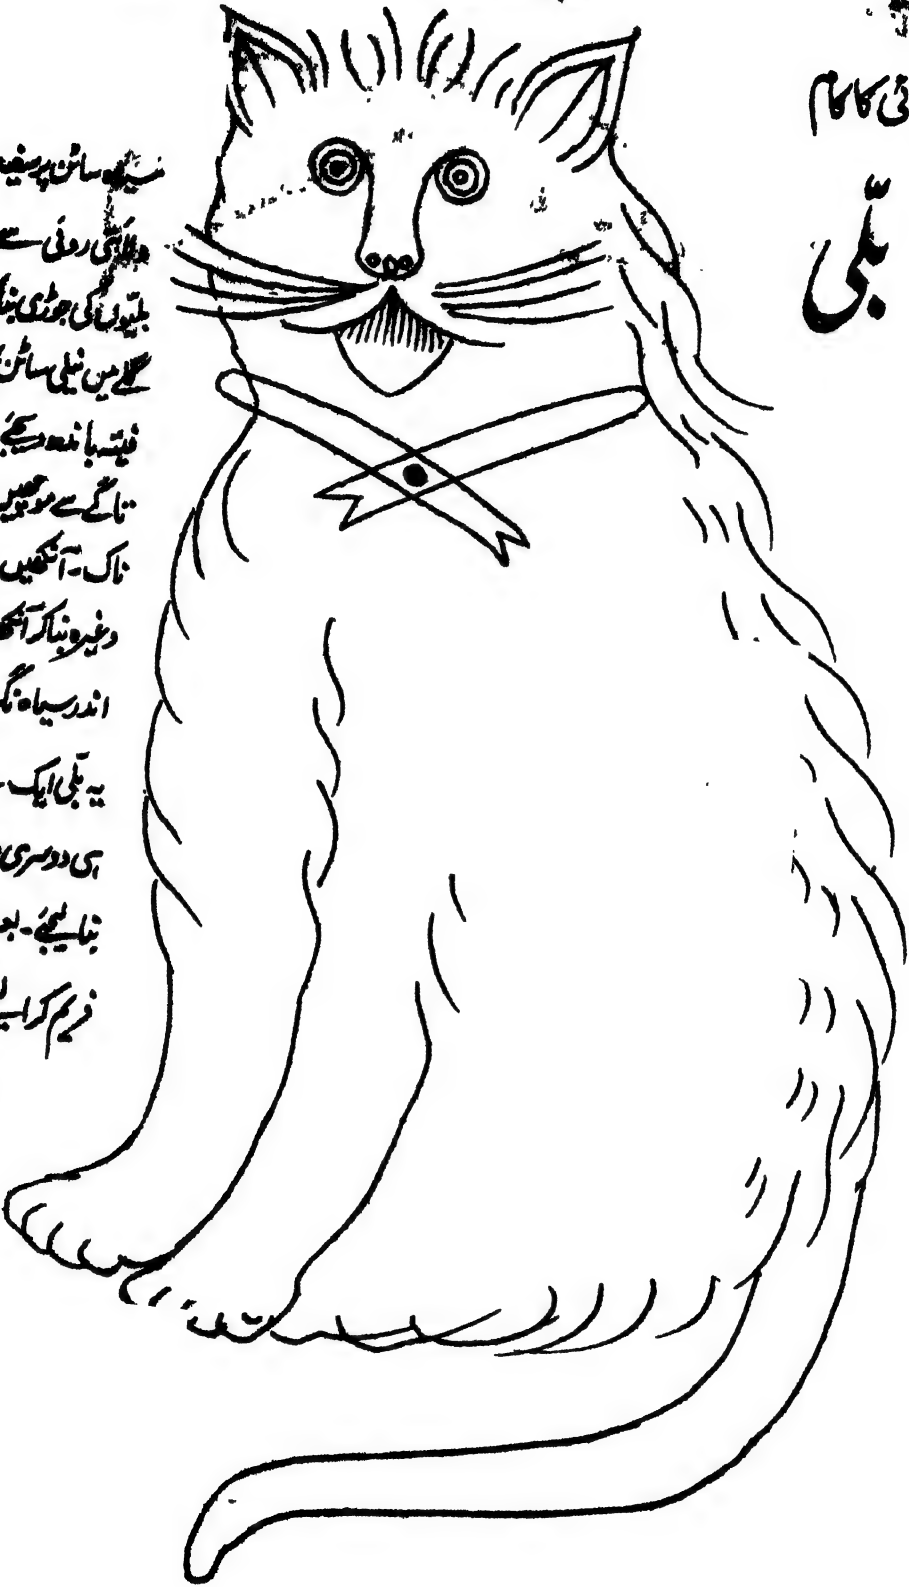 کا کام
بلّی
سیاہ ساٹن پر سفید
ولائتی روئی سے
بلّیوں کی جوڑی بنا
گلے میں نیلی ساٹن
فیتہ باندھ دیجئے
تاگے سے موچھیں
ناک ۔ آنکھیں
وغیرہ بنا کر آنکھ
اندر سیاہ نگ
یہ بلّی ایک
ہی دوسری
بنا لیجئے ۔
فریم کرا